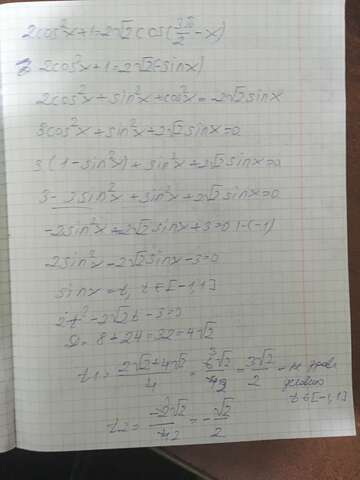 2cos²x+1=2√2cos(3π/2-x)
2cos²x+1=2√2(-sinx)
2cos²x+sin²x+cos²x=-2√2sinx
3cos²x+sin²x+2√2sinx=0
3(1-sin²x)+sin²x+2√2sinx=0
3-3sin²x+sin²x+2√2sinx=0
-2sin²x+2√2sinx+3=0 |·(-1)
2sin²x-2√2sinx-3=0
sinx=t, t∈[-1,1]
2t²-2√2t-3=0
D=8+24=32=4√2
t1=2√2+4√2/4=6√2/4=3√2/2-
t∈[-1,1]
t2=-2√2/4=-√2/2